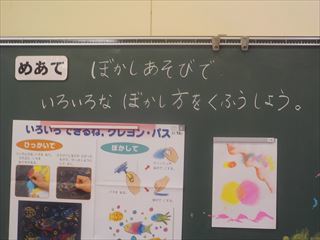 めあて
ぼかしあそびで
いろいろな ぼかし方をくふうしよう。
いろいろできるね、クレヨン・パス
ひっかいて
ぼかして